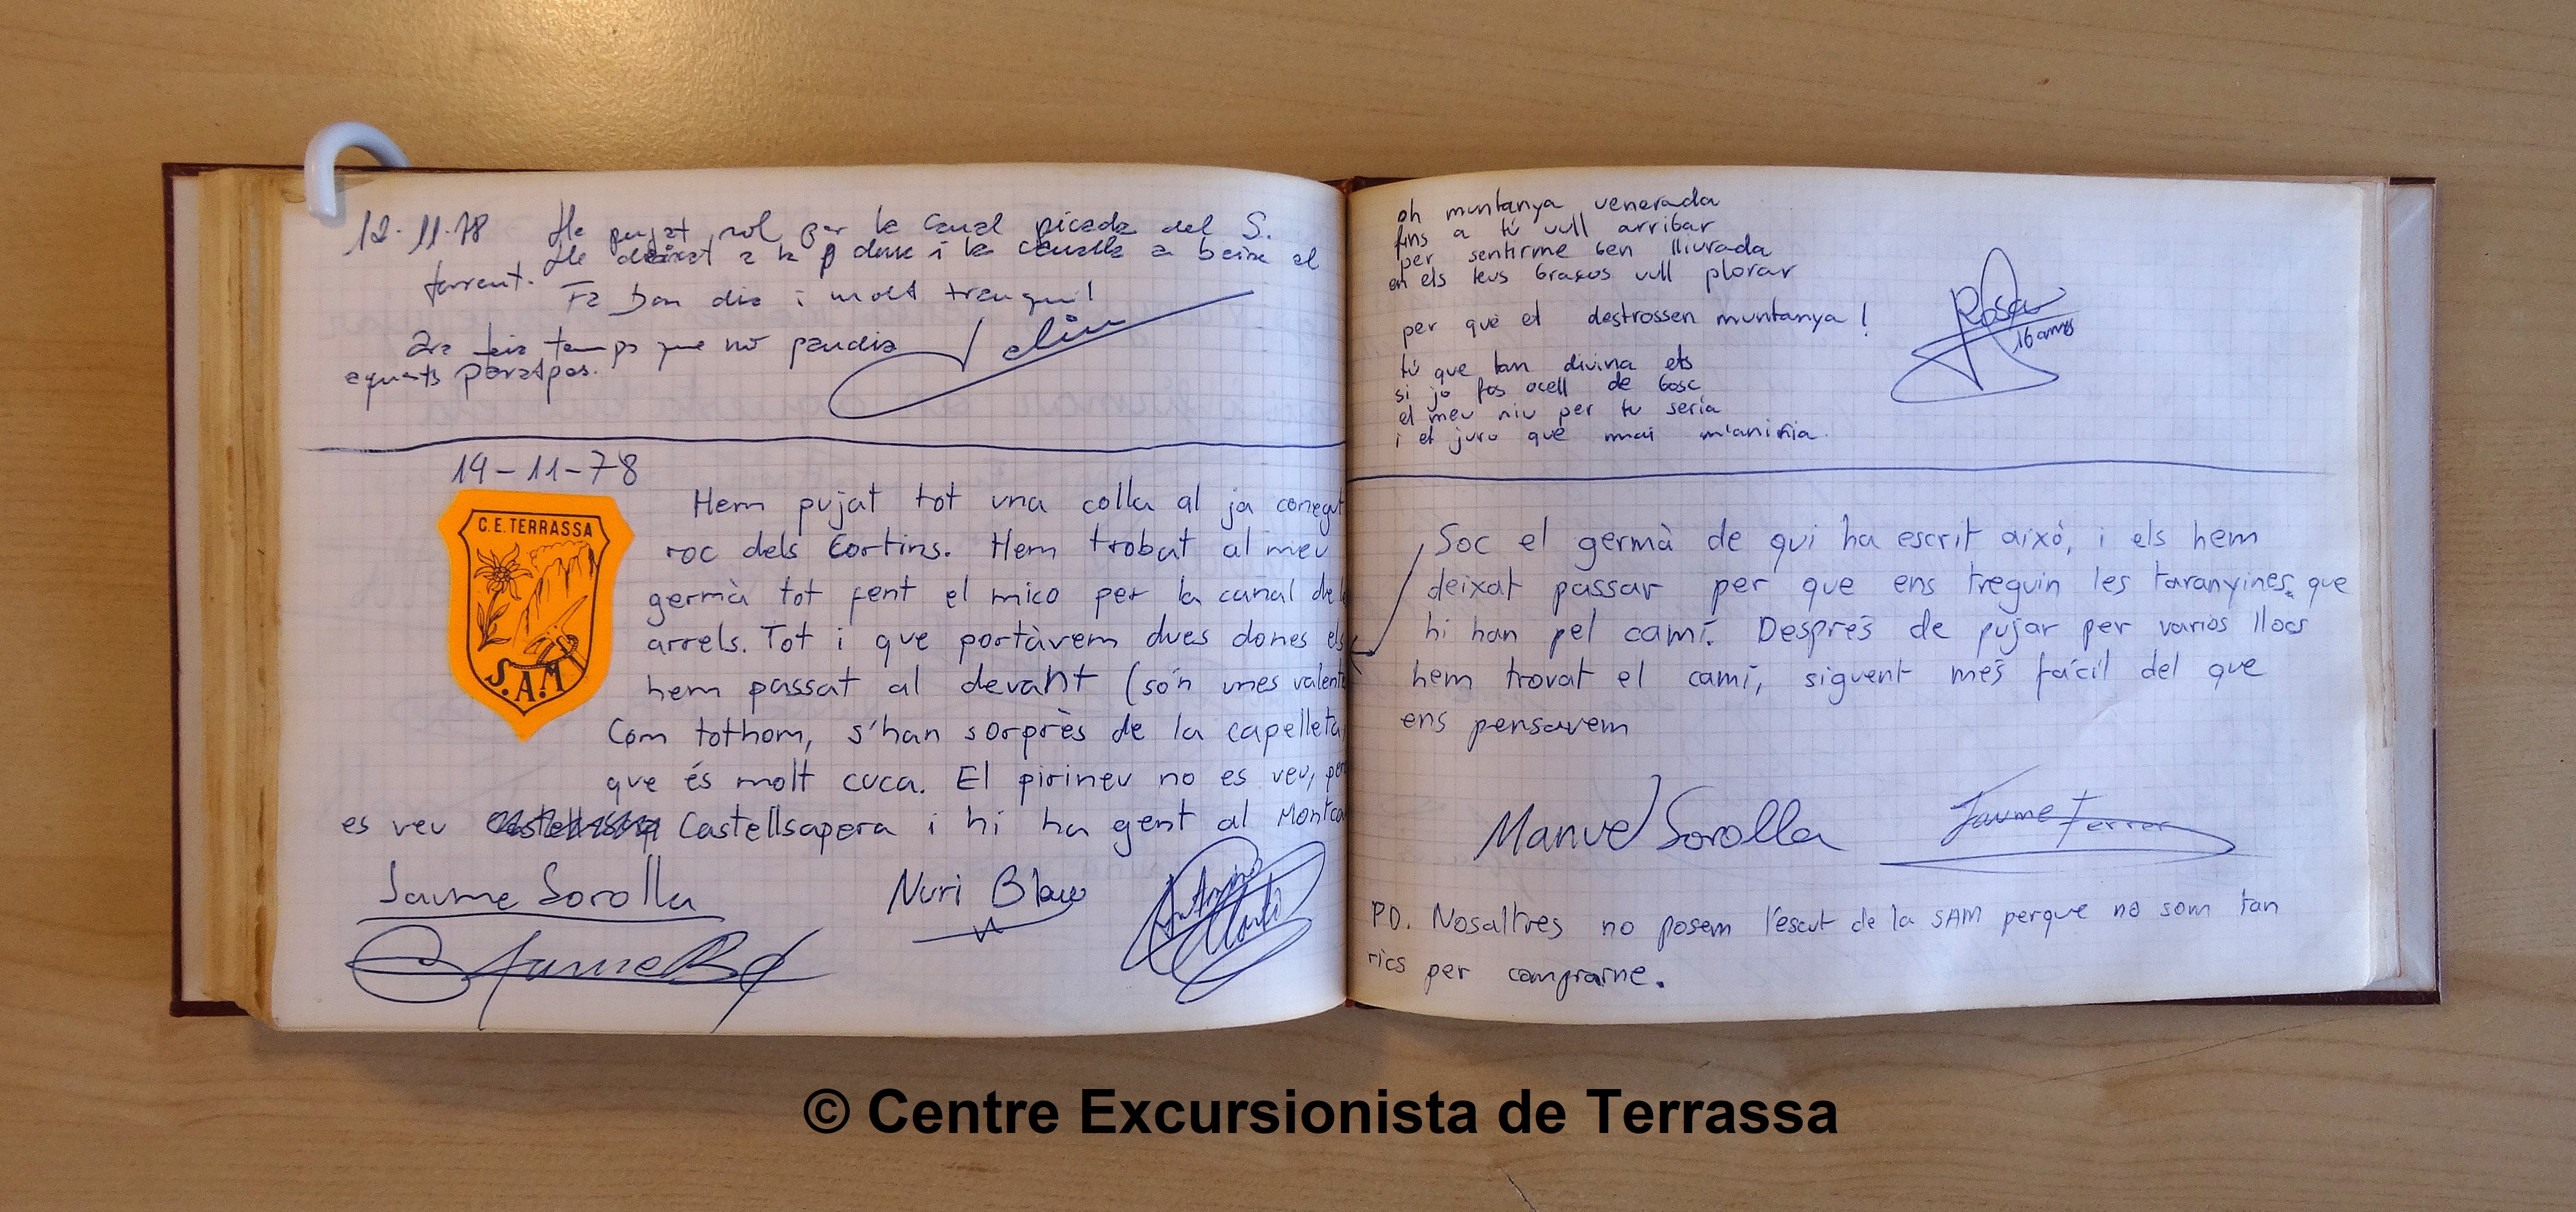 12-11-78 He pujat sol per la canal picada del S.
He deixat a la dona i la canalla a baix al
torrent. Fa bon dia i molt tranquil
ara feia temps que no
aquests paratges.
14-11-78
C.E. TERRASSA
S.A.M
Hem pujat tot una colla al ja conegut
roc dels Cortins. Hem trobat al meu
germà tot fent el mico per la canal de
arrels. Tot i que portàvem dues dones els
hem passat al devant (són unes valente
Com tothom, s'han sorprès de la capelleta,
que és molt cuca. El pirineu no es veu, però
es veu Castellsapera i hi ha gent al Montca
Jaume Sorolla
Nuri
Antonio
Jaume
oh muntanya venerada
fins a tú vull arribar
per sentirme ben lliurada
en els teus braxos vull plorar
per què et destrossen muntanya !
tú que tan divina ets
si jo fos ocell de bosc
el meu niu per tu sería
i et juro que mai m'aniria.
Rosa
16 anys
Soc el germà de qui ha escrit aixó, i els hem
deixat passar per que ens treguin les taranyines que
hi han pel camí. Després de pujar per varios llocs
hem trovat el camí, siguent més fácil del que
ens pensavem
Manuel Sorolla
Jaume Ferrer
PD. Nosaltres no posem l'escut de la SAM perque no som tan
rics per comprarne.
© Centre Excursionista de Terrassa